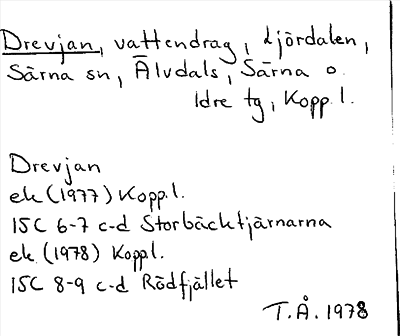 Drevjan, vattendrag, Ljördalen,
Särna sn, Älvdals, Särna o.
Idre tg, Kopp.l.
Drevjan
ek (1977) Kopp.l.
15C 6-7 c-d Storbäcktjärnarna
ek (1978) Koppl.
15C 8-9 c-d Rödfjället
T.Å. 1978